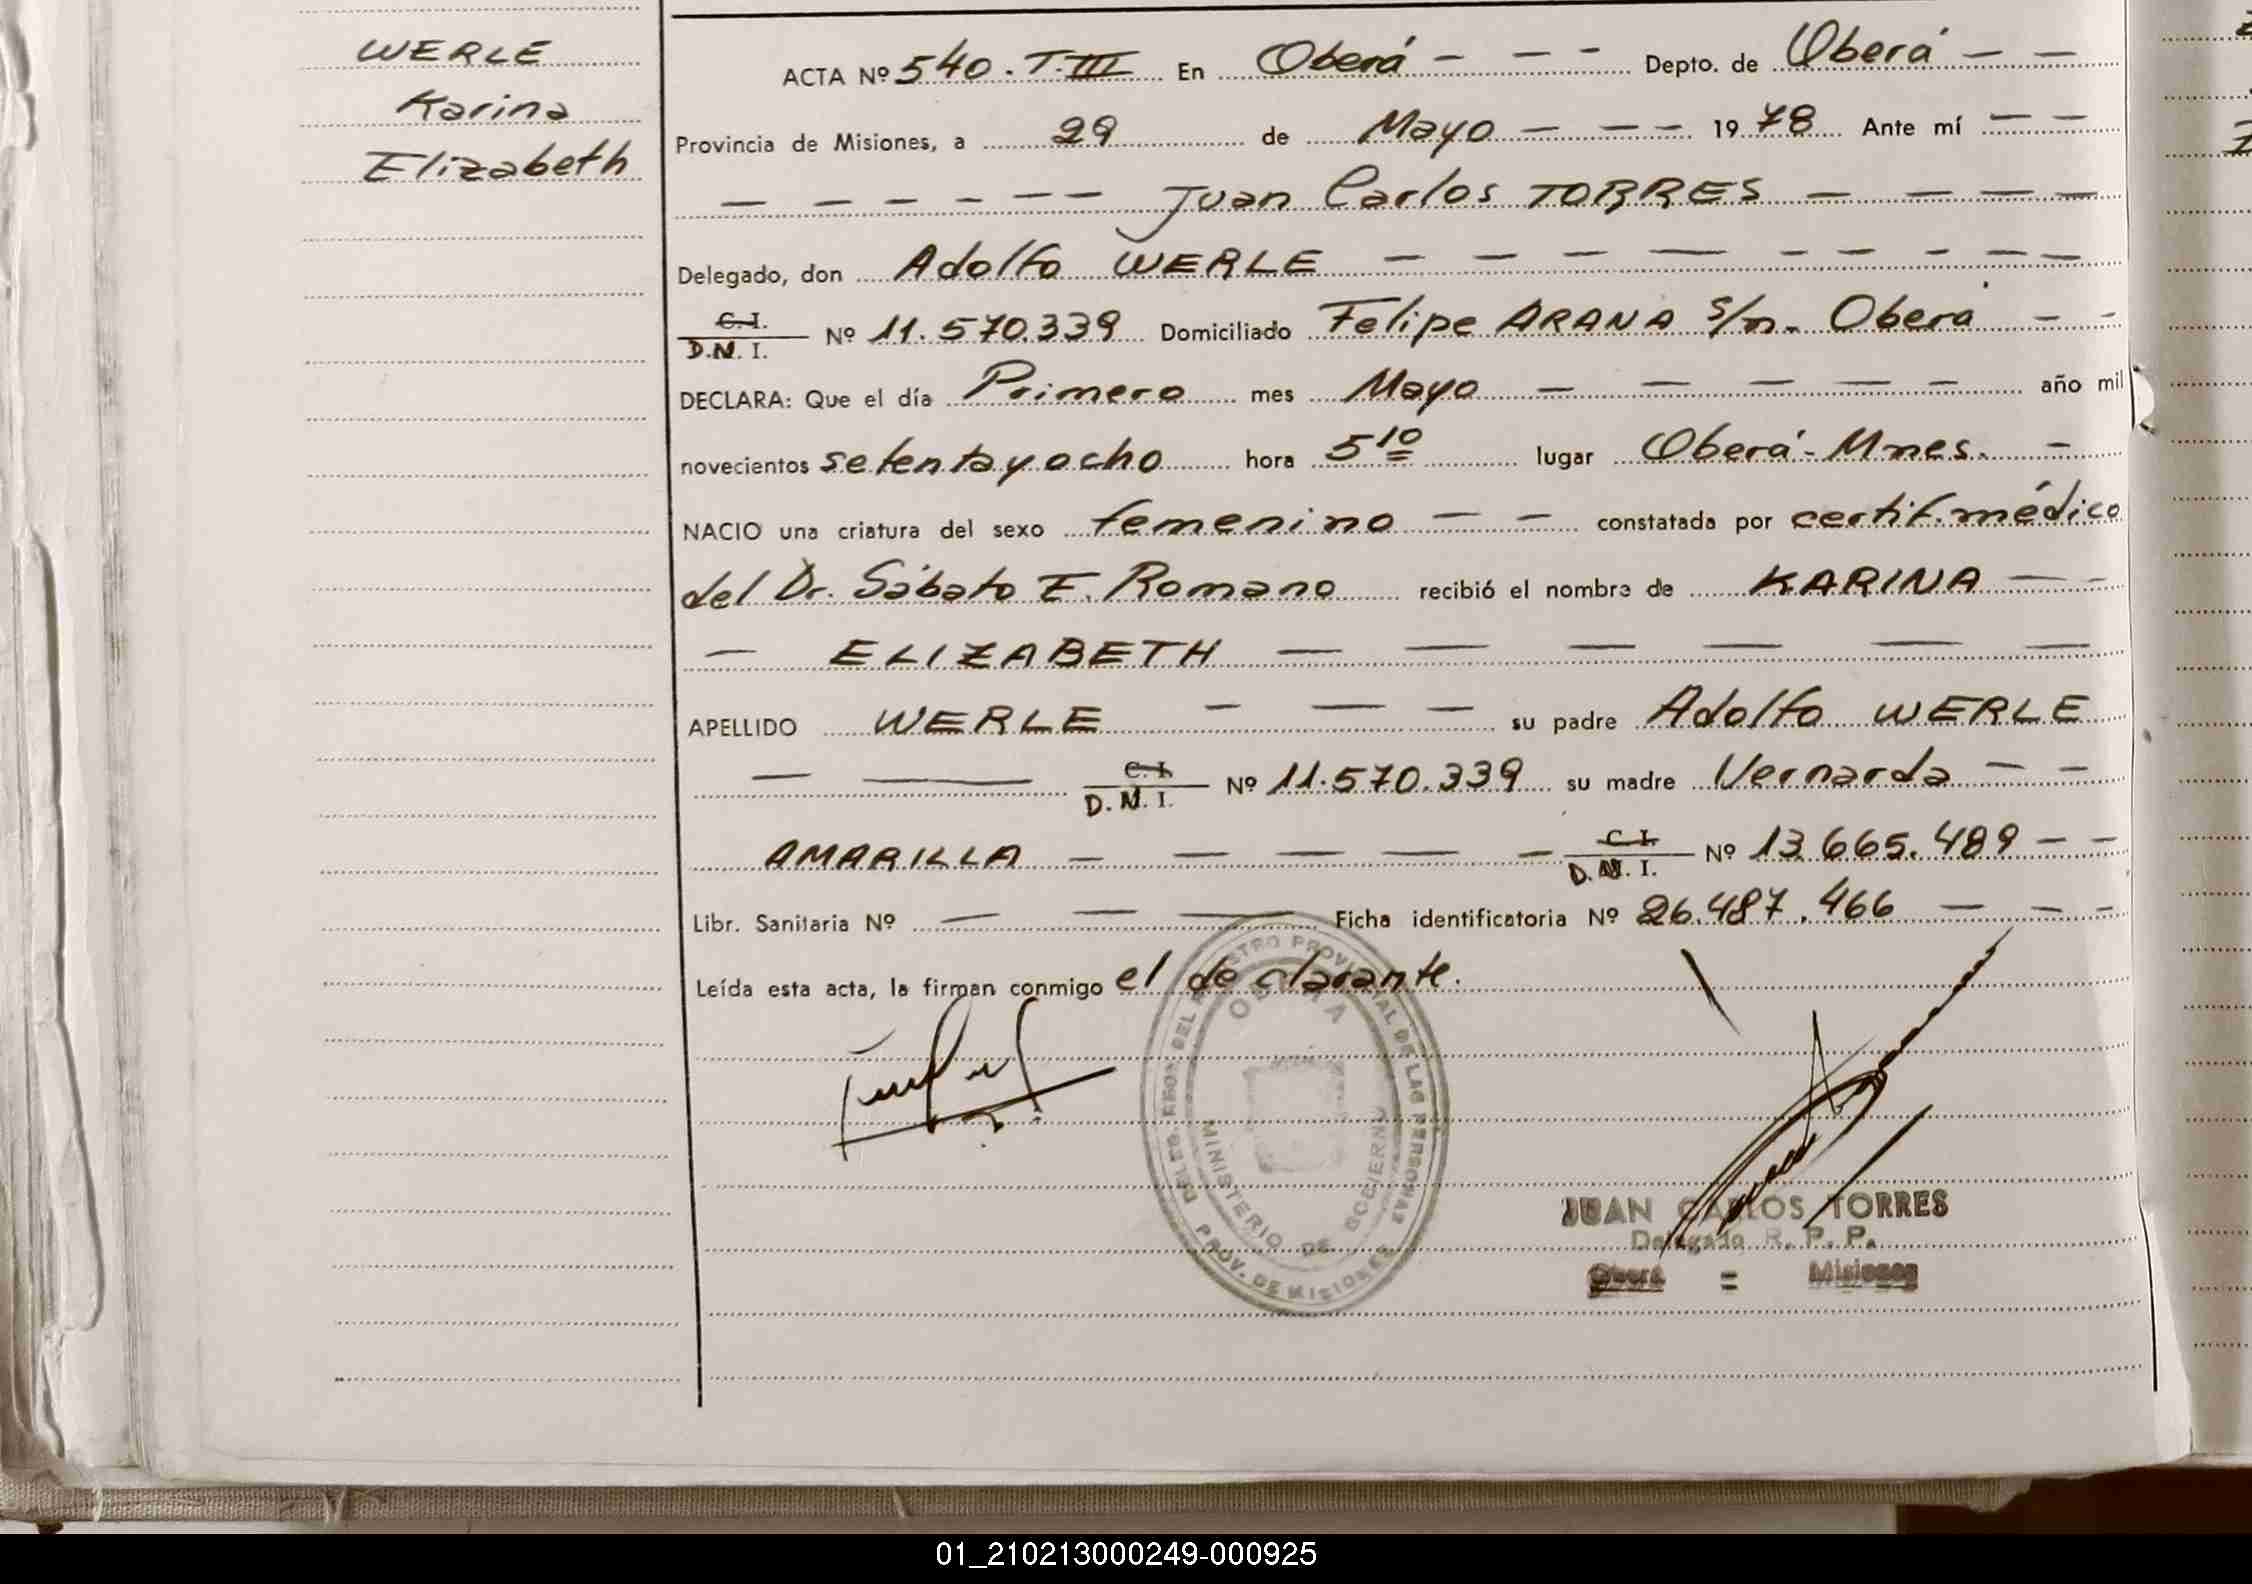 WERLE
Karina
Elizabeth
ACTA Nº 540. T. III En Oberá - - - Depto. de Oberá - -
Provincia de Misiones, a 29 de Mayo - - - 19 78 Ante mí - -
- - - - - - Juan Carlos TORRES - - - -
Delegado, don Adolfo WERLE - - - - - - - - -
C. I.
D.N. I. Nº 11.570.339 Domiciliado Felipe ARANA s/n. Oberá - -
DECLARA: Que el día Primero mes Mayo - - - - - año mil
novecientos setenta y ocho hora 5 10 lugar Oberá - Mnes. -
NACIO una criatura del sexo femenino - - constatada por certif. médico
del Dr. Sábato E. Romano recibió el nombre de KARINA - -
- ELIZABETH - - - - - -
APELLIDO WERLE - - - su padre Adolfo WERLE
- - C. I.
D. N. I. Nº 11.570.339 su madre Vernarda - -
AMARILLA - - - - - C. I.
D. N. I. Nº 13.665.489 - -
Libr. Sanitaria Nº - - - Ficha identificatoria Nº 26.487.466 - - -
Leída esta acta, la firman conmigo el declarante.
OBERA
MINISTERIO DE GOBIERNO
PROV. DE MISIONES
JUAN CARLOS TORRES
Delegado R. P. P.
Oberá = Misiones
01_210213000249-000925